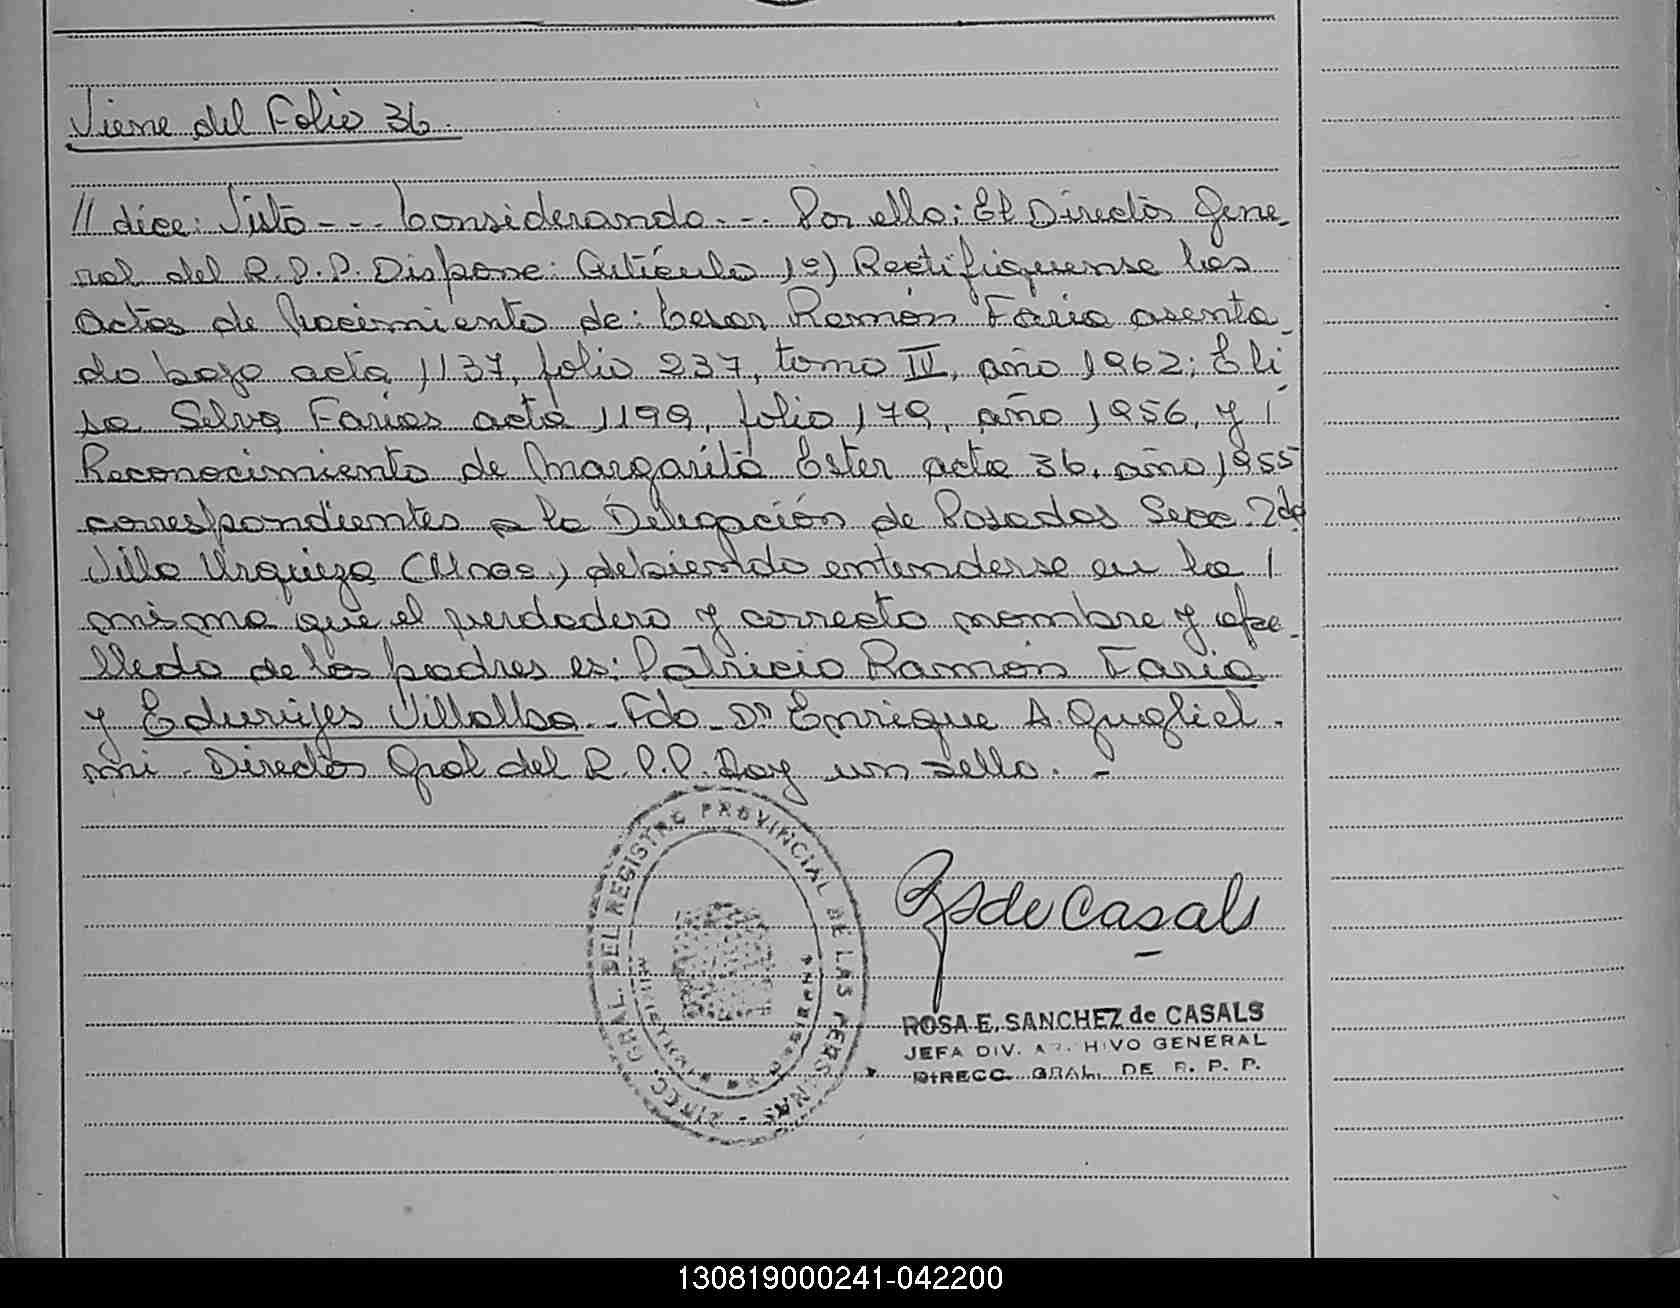 Viene del Folio 36.
// dice: Visto - - - Considerando - - - Por ello: El Director Gene-
ral del R.P.P. Dispone: Artículo 1º) Rectifiquense las
actas de Nacimiento de: Cesar Ramón Faria asenta-
do bajo acta 1137, folio 237, tomo III, año 1962; Eli-
sa Selva Farias acta 1199, folio 179, año 1956, y /
Reconocimiento de Margarita Ester acta 36, año 1955
correspondientes a la Delegación de Posadas Secc. 2da
Villa Urquiza (Mnes) debiendo entenderse en la /
misma que el verdadero y correcto nombre y ape-
llido de los padres es: Patricio Ramón Faria
y Eduvijes Villalba - Fdo - Dr Enrique A. Gugliel-
mi - Director Gral del R.P.P. Hay un sello. -
DIRECC. GRAL. DEL REGISTRO PROVINCIAL DE LAS PERSONAS -
RS de Casals
ROSA E. SANCHEZ de CASALS
JEFA DIV. ARCHIVO GENERAL
DIRECC. GRAL. DE R. P. P.
130819000241-042200